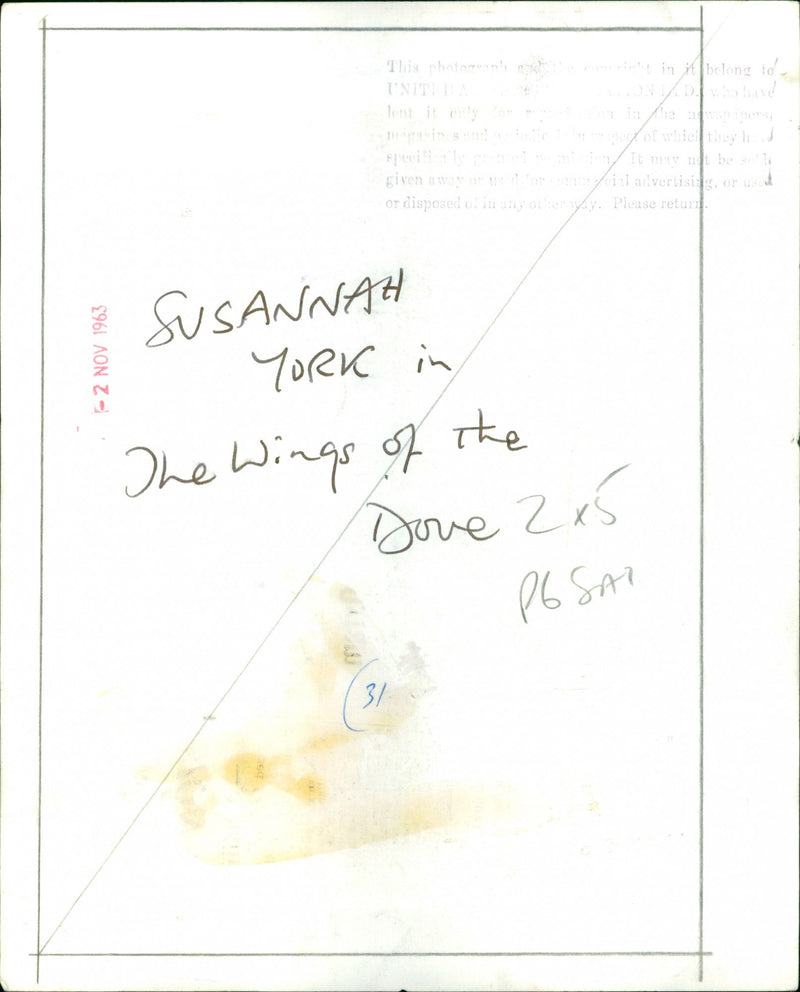 This photograph and the copyright in it belong to
UNITED LTD., who have
lent it only for reproduction in the newspapers,
magazines and periodicals in respect of which they have
specifically granted permission. It may not be sold,
given away or used for commercial advertising, or used
or disposed of in any other way. Please return.
- 2 NOV 1963
SUSANNAH
YORK in
The Wings of the
Dove 2x5
P6 SAT
31